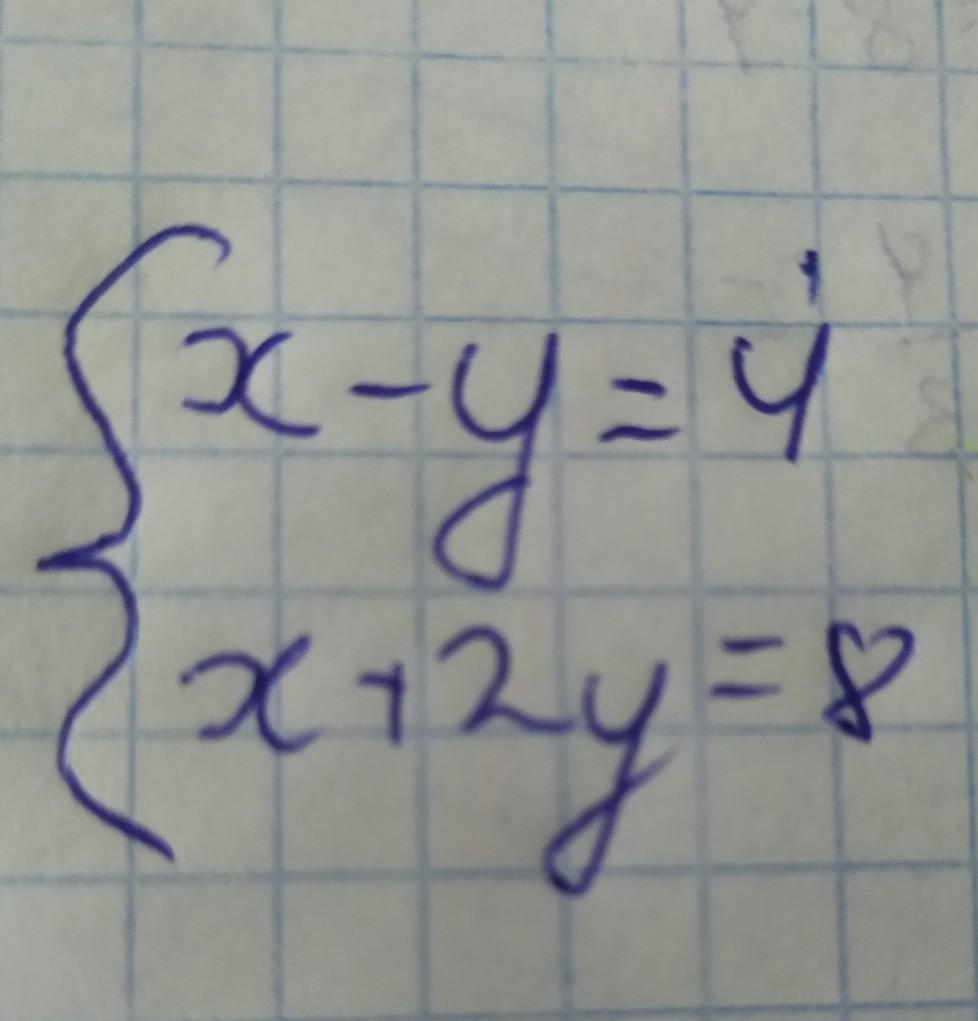 x - y = 4
x + 2y = 8